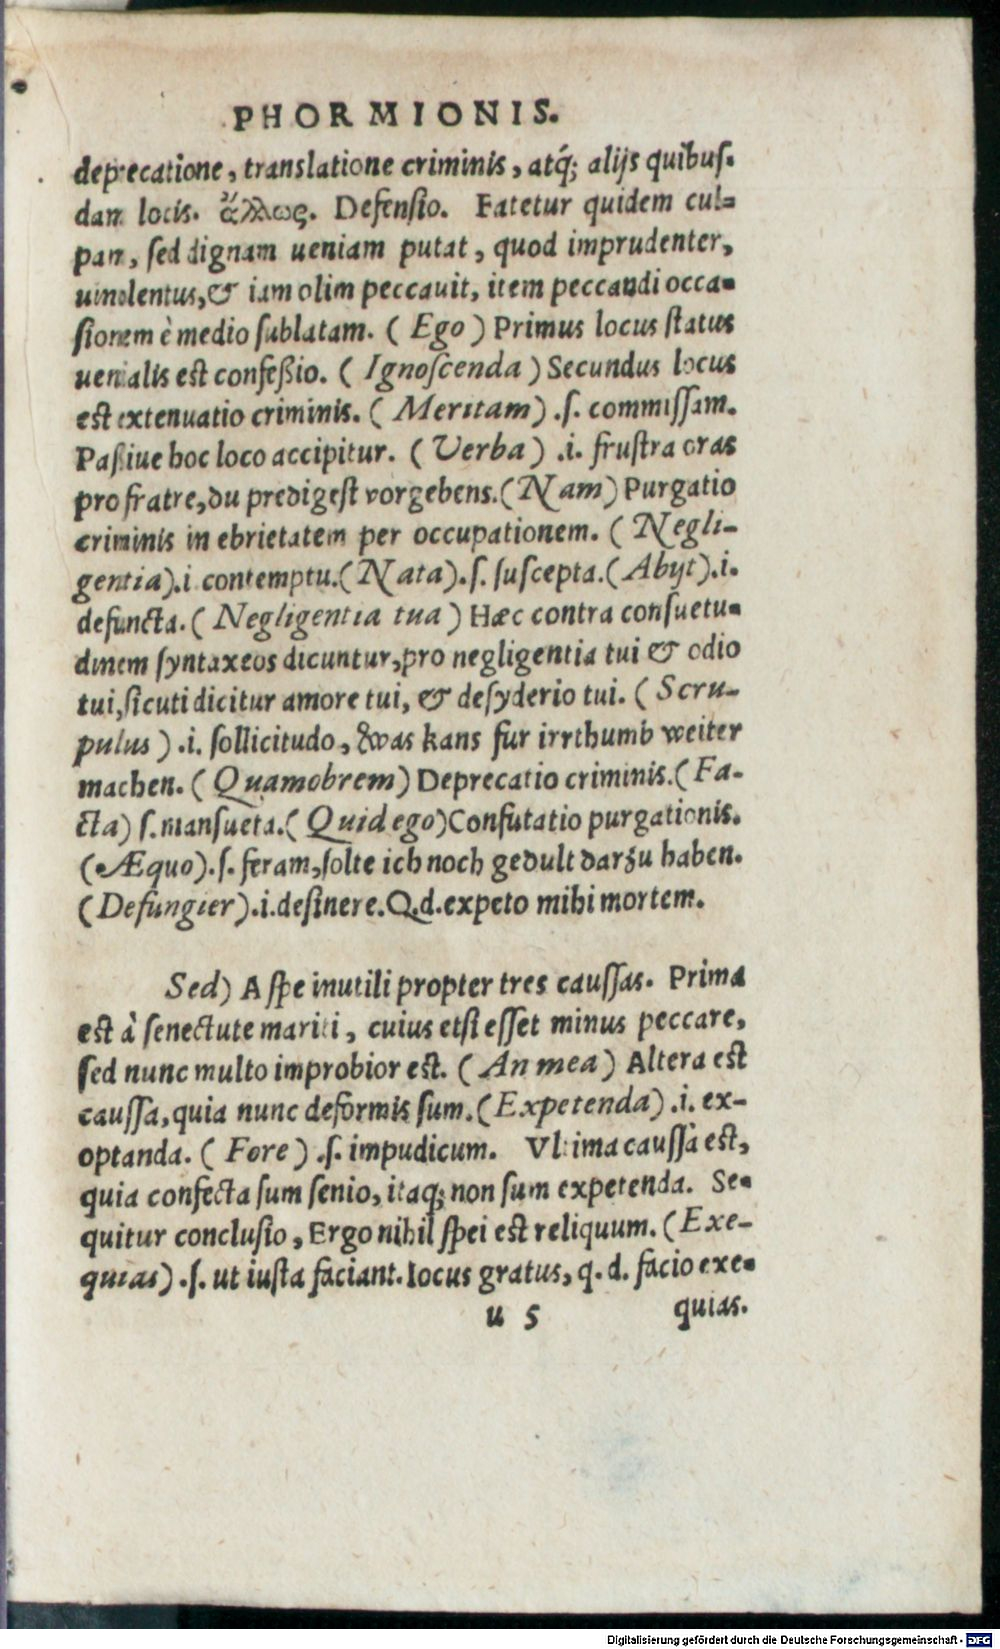 PHORMIONIS.
deprecatione, translatione criminis, atq́; alijs quibus-
dam locis. ἄλλως. Defensio. Fatetur quidem cul-
pam, sed dignam ueniam putat, quod imprudenter,
uinolentus, & iam olim peccauit, item peccandi occa-
sionem è medio sublatam. (Ego) Primus locus status
uenialis est confeßio. (Ignoscenda) Secundus locus
est extenuatio criminis. (Meritam) .ſ. commissam.
Paßiue hoc loco accipitur. (Verba) .i. frustra oras
pro fratre, du predigest vorgebens. (Nam) Purgatio
criminis in ebrietatem per occupationem. (Negli-
gentia).i. contemptu. (Nata).ſ. suscepta. (Abijt).i.
defuncta. (Negligentia tua) Hæc contra consuetu-
dinem syntaxeos dicuntur, pro negligentia tui & odio
tui, sicuti dicitur amore tui, & desyderio tui. (Scru-
pulus) .i. sollicitudo, was kans fur irrthumb weiter
machen. (Quamobrem) Deprecatio criminis. (Fa-
cta) ſ. mansueta. (Quid ego) Confutatio purgationis.
(Æquo).ſ. feram, solte ich noch gedult darzu haben.
(Defungier).i. desinere. Q.d. expeto mihi mortem.
Sed) A spe inutili propter tres caussas. Prima
est à senectute mariti, cuius etsi esset minus peccare,
sed nunc multo improbior est. (An mea) Altera est
caussa, quia nunc deformis sum. (Expetenda) .i. ex-
optanda. (Fore) .ſ. impudicum. Vltima caussa est,
quia confecta sum senio, itaq; non sum expetenda. Se-
quitur conclusio, Ergo nihil spei est reliquum. (Exe-
quias) .ſ. ut iusta faciant. Iocus gratus, q. d. facio exe-
u 5 quias.
Digitalisierung gefördert durch die Deutsche Forschungsgemeinschaft - DFG